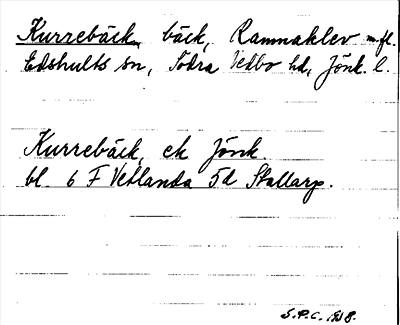 Kurrebäck, bäck, Ramnaklev m. fl.
Edshults sn, Södra Vedbo hd, Jönk. l.
Kurrebäck, ek Jönk.
bl. 6 F Vetlanda 5d Stallarp.
S.P.C. 1938.